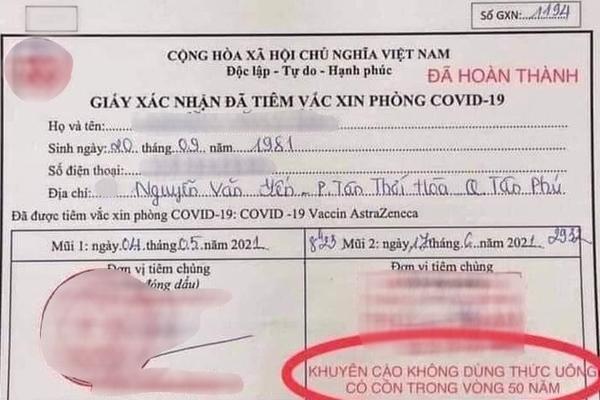 Số GXN:...1194
CỘNG HÒA XÃ HỘI CHỦ NGHĨA VIỆT NAM
Độc lập - Tự do - Hạnh phúc
ĐÃ HOÀN THÀNH
GIẤY XÁC NHẬN ĐÃ TIÊM VẮC XIN PHÒNG COVID-19
Họ và tên:
Sinh ngày: 20 tháng 09 năm 1981
Số điện thoại:
Địa chỉ: Nguyễn Văn Yến - P. Tân Thới Hòa Q Tân Phú
Đã được tiêm vắc xin phòng COVID-19: COVID -19 Vaccin AstraZeneca
Mũi 1: ngày 04 tháng 05 năm 2021
Mũi 2: ngày 17 tháng 6 năm 2021
Đơn vị tiêm chủng
đóng dấu)
Đơn vị tiêm chủng
KHUYẾN CÁO KHÔNG DÙNG THỨC UỐNG
CÓ CỒN TRONG VÒNG 50 NĂM